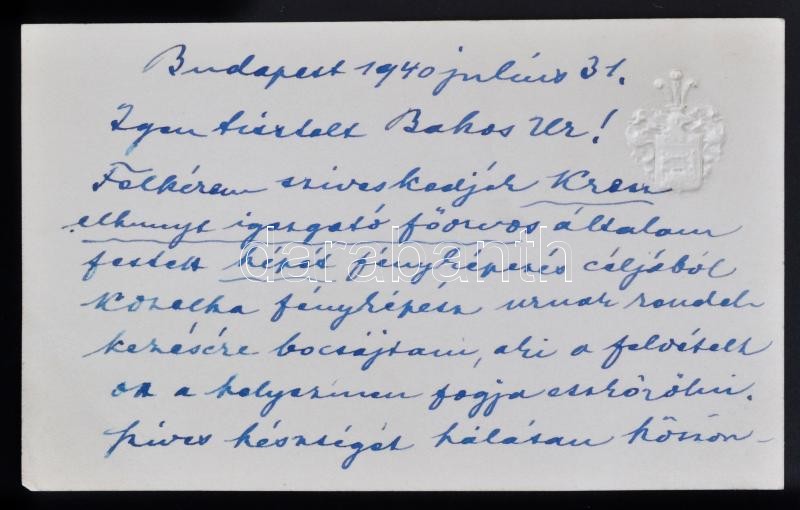 Budapest 1940 július 31.
Igen tisztelt Bakos Ur!
Felkérem sziveskedjék Kresz
elhunyt igazgató főorvos általam
festett képét fényképezés céljából
Koselka fényképész urnak rendel-
kezésére bocsájtani, aki a felvételt
ott a helyszinen fogja eszközölni.
Szives készségét hálásan köszön-
darabanth